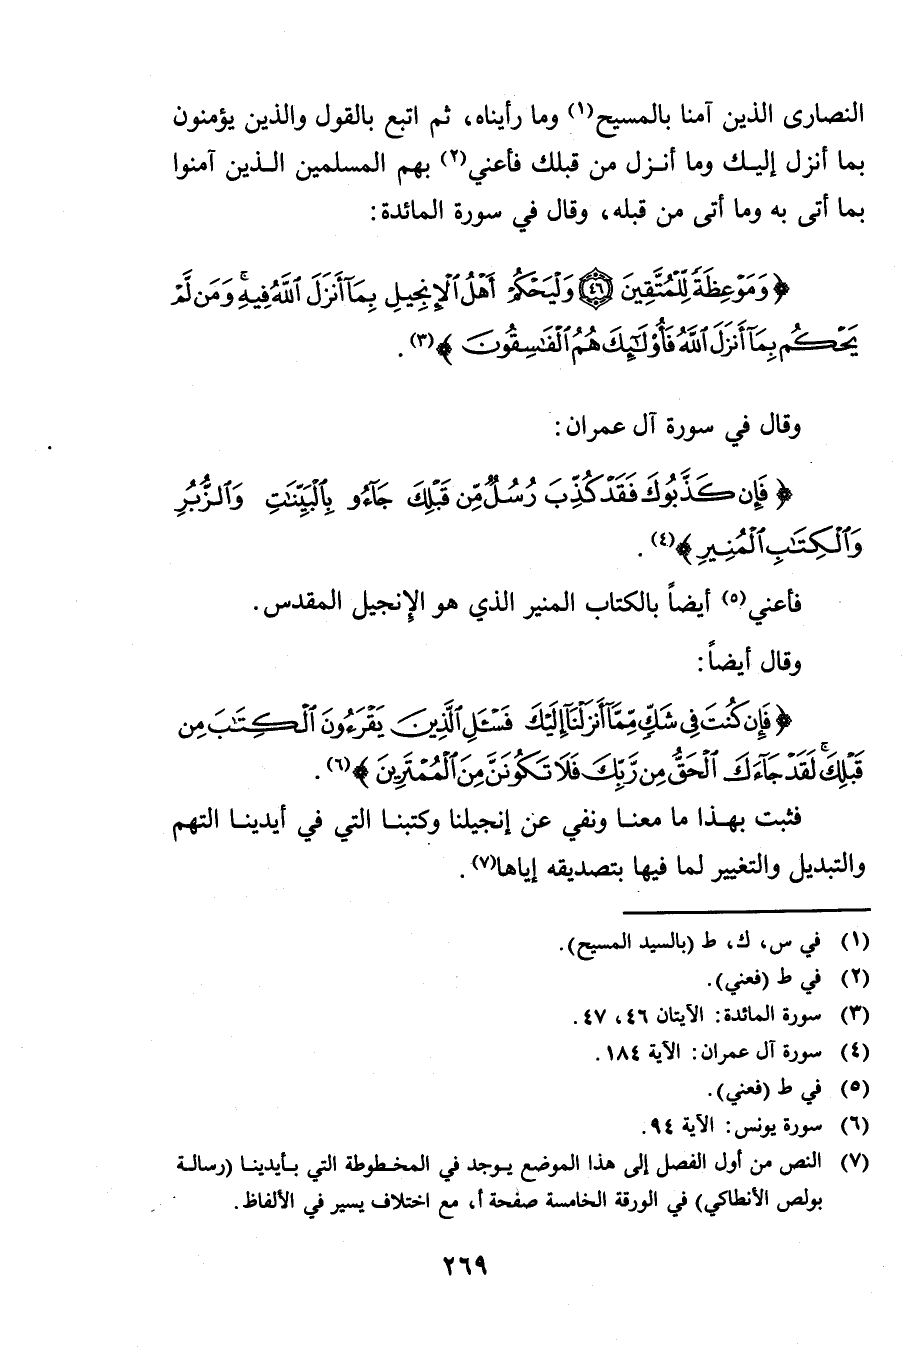 النصارى الذين آمنا بالمسيح(١) وما رأيناه، ثم اتبع بالقول والذين يؤمنون
بما أنزل إليك وما أنزل من قبلك فأعني(٢) بهم المسلمين الذين آمنوا
بما أتى به وما أتى من قبله، وقال في سورة المائدة:
﴿ وَمَوْعِظَةً لِّلْمُتَّقِينَ ٤٦ وَلْيَحْكُمْ أَهْلُ ٱلْإِنجِيلِ بِمَآ أَنزَلَ ٱللَّهُ فِيهِ ۚ وَمَن لَّمْ
يَحْكُم بِمَآ أَنزَلَ ٱللَّهُ فَأُو۟لَـٰٓئِكَ هُمُ ٱلْفَـٰسِقُونَ ﴾(٣).
وقال في سورة آل عمران:
﴿ فَإِن كَذَّبُوكَ فَقَدْ كُذِّبَ رُسُلٌ مِّن قَبْلِكَ جَآءُو بِٱلْبَيِّنَـٰتِ وَٱلزُّبُرِ
وَٱلْكِتَـٰبِ ٱلْمُنِيرِ ﴾(٤).
فأعني(٥) أيضاً بالكتاب المنير الذي هو الإنجيل المقدس.
وقال أيضاً:
﴿ فَإِن كُنتَ فِى شَكٍّ مِّمَّآ أَنزَلْنَآ إِلَيْكَ فَسْـَٔلِ ٱلَّذِينَ يَقْرَءُونَ ٱلْكِتَـٰبَ مِن
قَبْلِكَ ۚ لَقَدْ جَآءَكَ ٱلْحَقُّ مِن رَّبِّكَ فَلَا تَكُونَنَّ مِنَ ٱلْمُمْتَرِينَ ﴾(٦).
فثبت بهذا ما معنا ونفي عن إنجيلنا وكتبنا التي في أيدينا التهم
والتبديل والتغيير لما فيها بتصديقه إياها(٧).
(١) في س، ك، ط (بالسيد المسيح).
(٢) في ط (فعني).
(٣) سورة المائدة: الآيتان ٤٦، ٤٧.
(٤) سورة آل عمران: الآية ١٨٤.
(٥) في ط (فعني).
(٦) سورة يونس: الآية ٩٤.
(٧) النص من أول الفصل إلى هذا الموضع يوجد في المخطوطة التي بأيدينا (رسالة
بولص الأنطاكي) في الورقة الخامسة صفحة أ، مع اختلاف يسير في الألفاظ.
٢٦٩